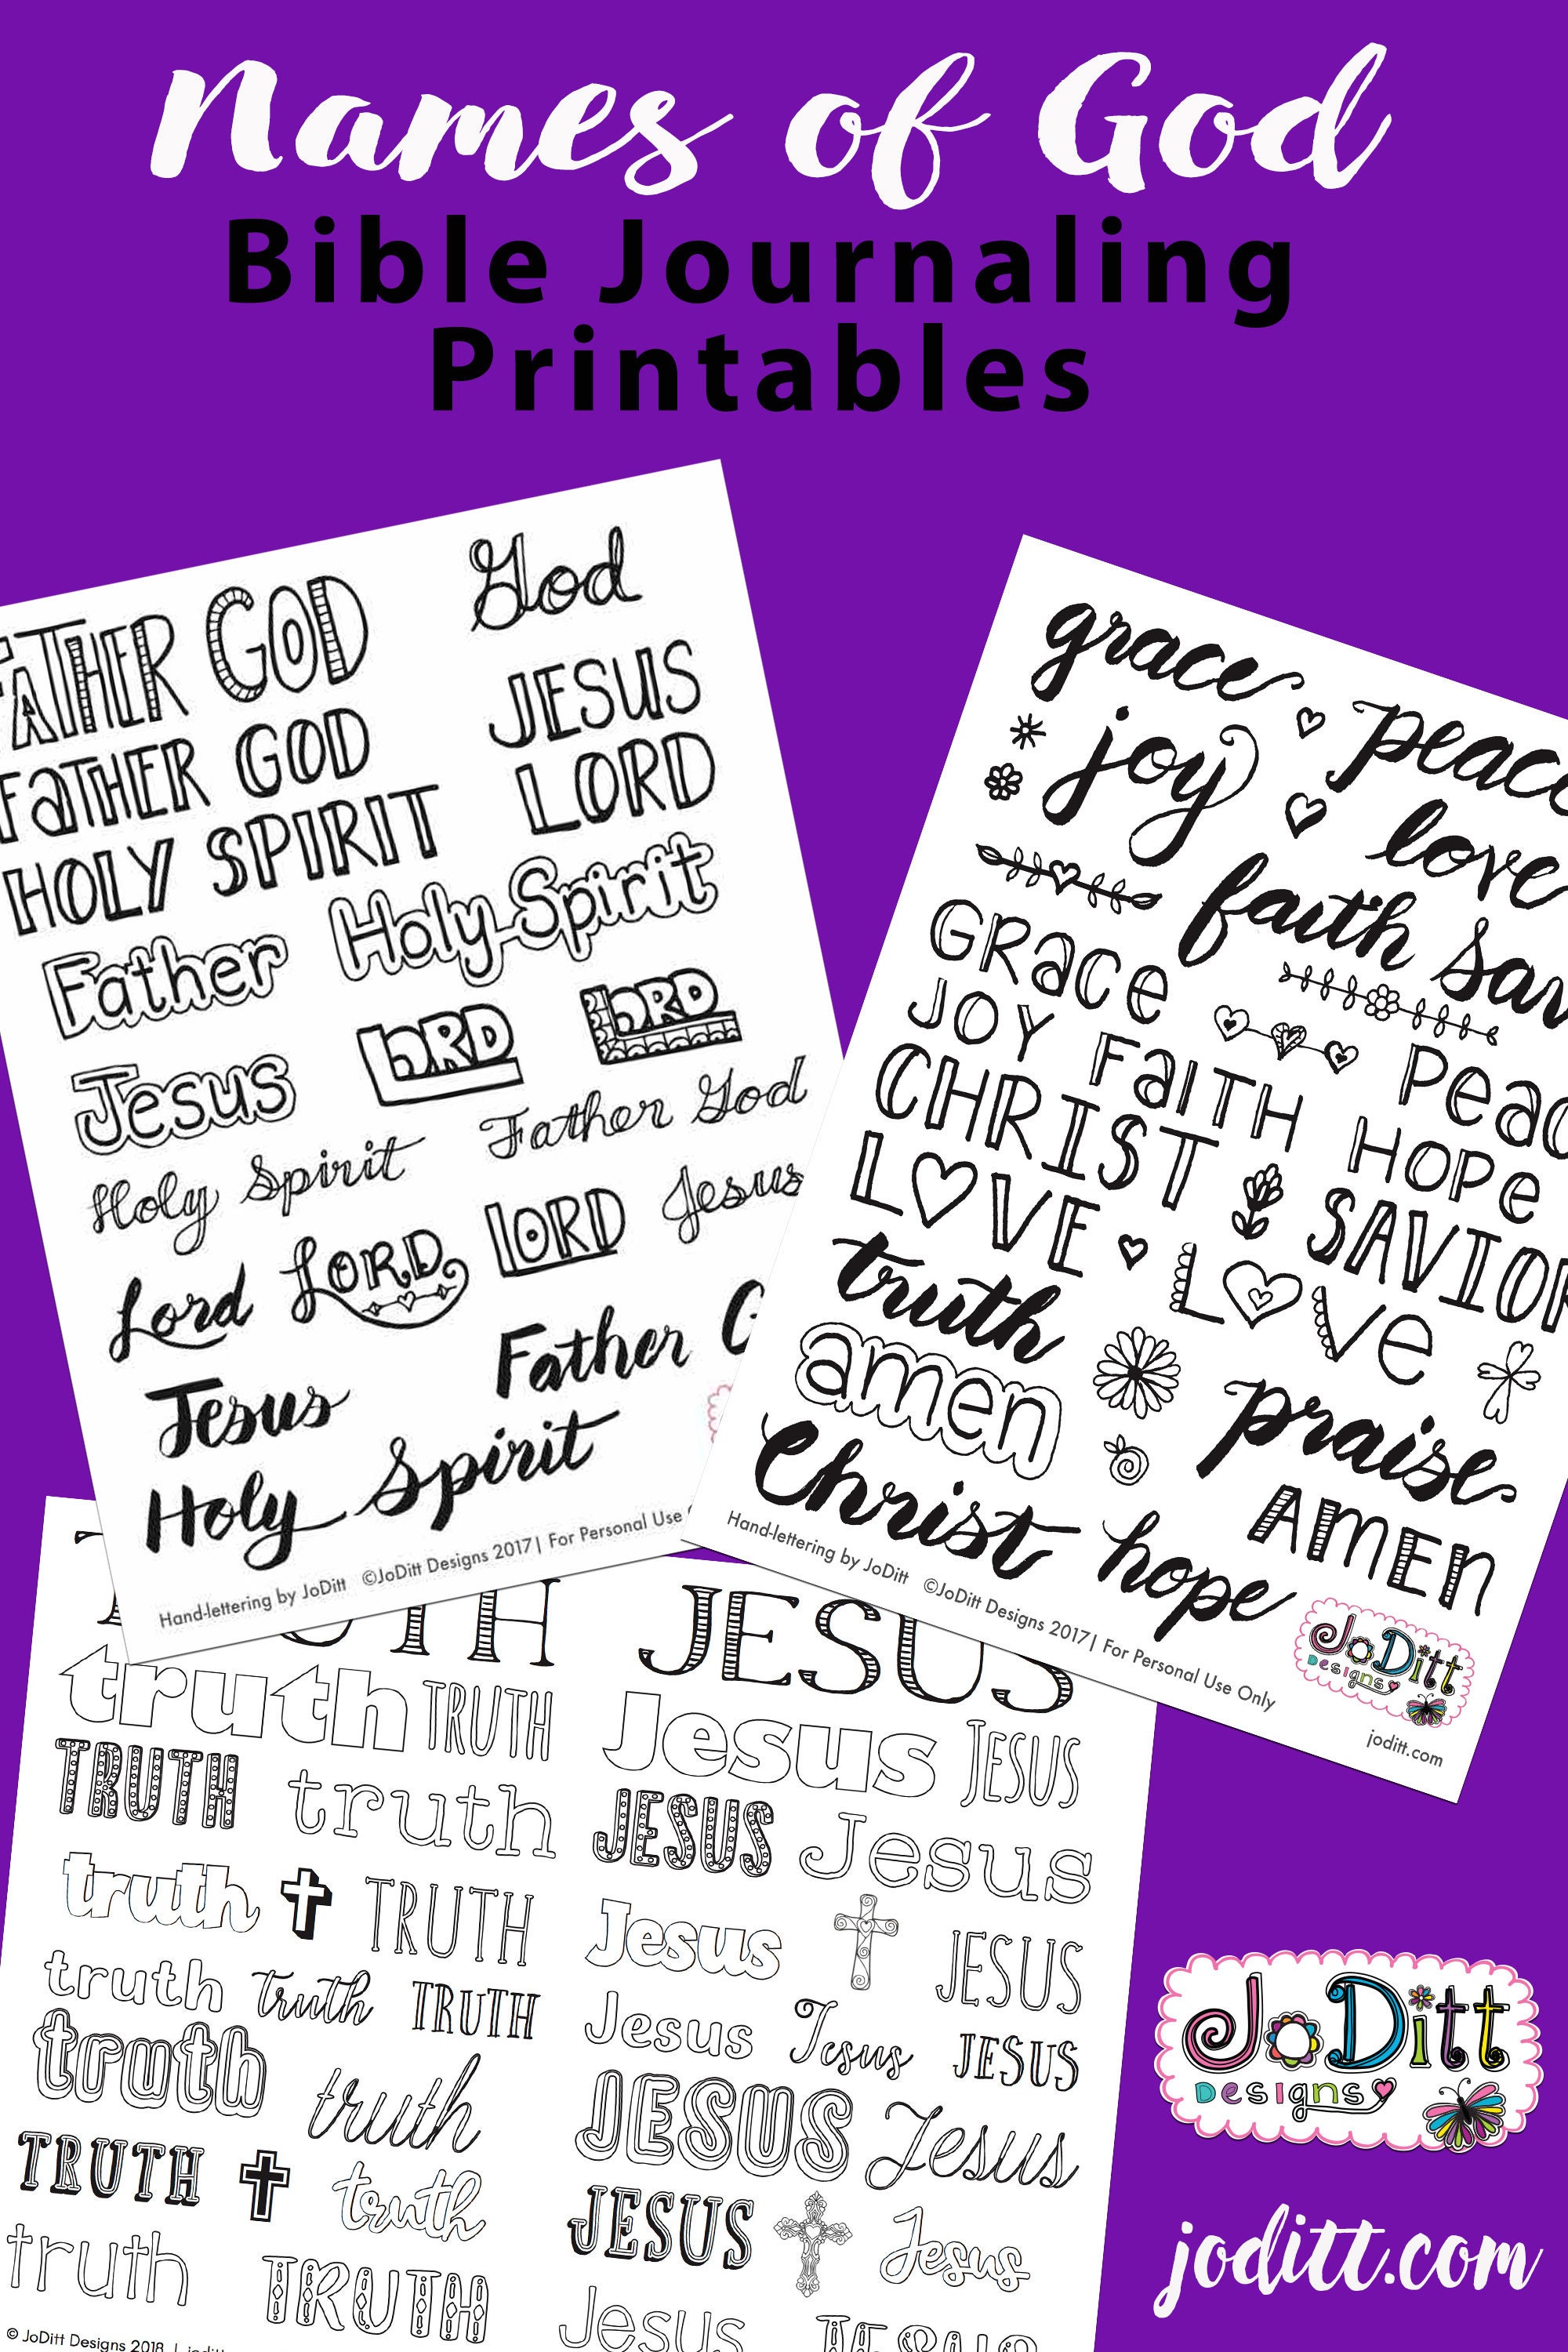 Names of God
Bible Journaling
Printables
FATHER GOD
God
FATHER GOD
JESUS
HOLY SPIRIT
LORD
Father
Holy Spirit
LORD
LORD
Jesus
Father God
Holy Spirit
LORD
Jesus
Lord
LORD
Father G
Jesus
Holy Spirit
Hand-lettering by JoDitt ©JoDitt Designs 2017| For Personal Use
grace
peace
joy
love
faith
Sav
GRace
JOY
FaITH
Peac
CHRIST
HOPe
LOVE
SAVIOR
truth
LOVe
amen
praise
Christ
hope
AMEN
Hand-lettering by JoDitt ©JoDitt Designs 2017| For Personal Use Only
JoDitt
Designs
joditt.com
TRUTH
JESUS
truth
TRUTH
Jesus
JESUS
TRUTH
truth
JESUS
Jesus
truth
TRUTH
Jesus
JESUS
truth
truth
TRUTH
Jesus
Jesus
JESUS
truth
truth
JESUS
Jesus
TRUTH
truth
JESUS
Jesus
truth
TRUTH
Jesus
JESUS
© JoDitt Designs 2018 | joditt
JoDitt
Designs
joditt.com